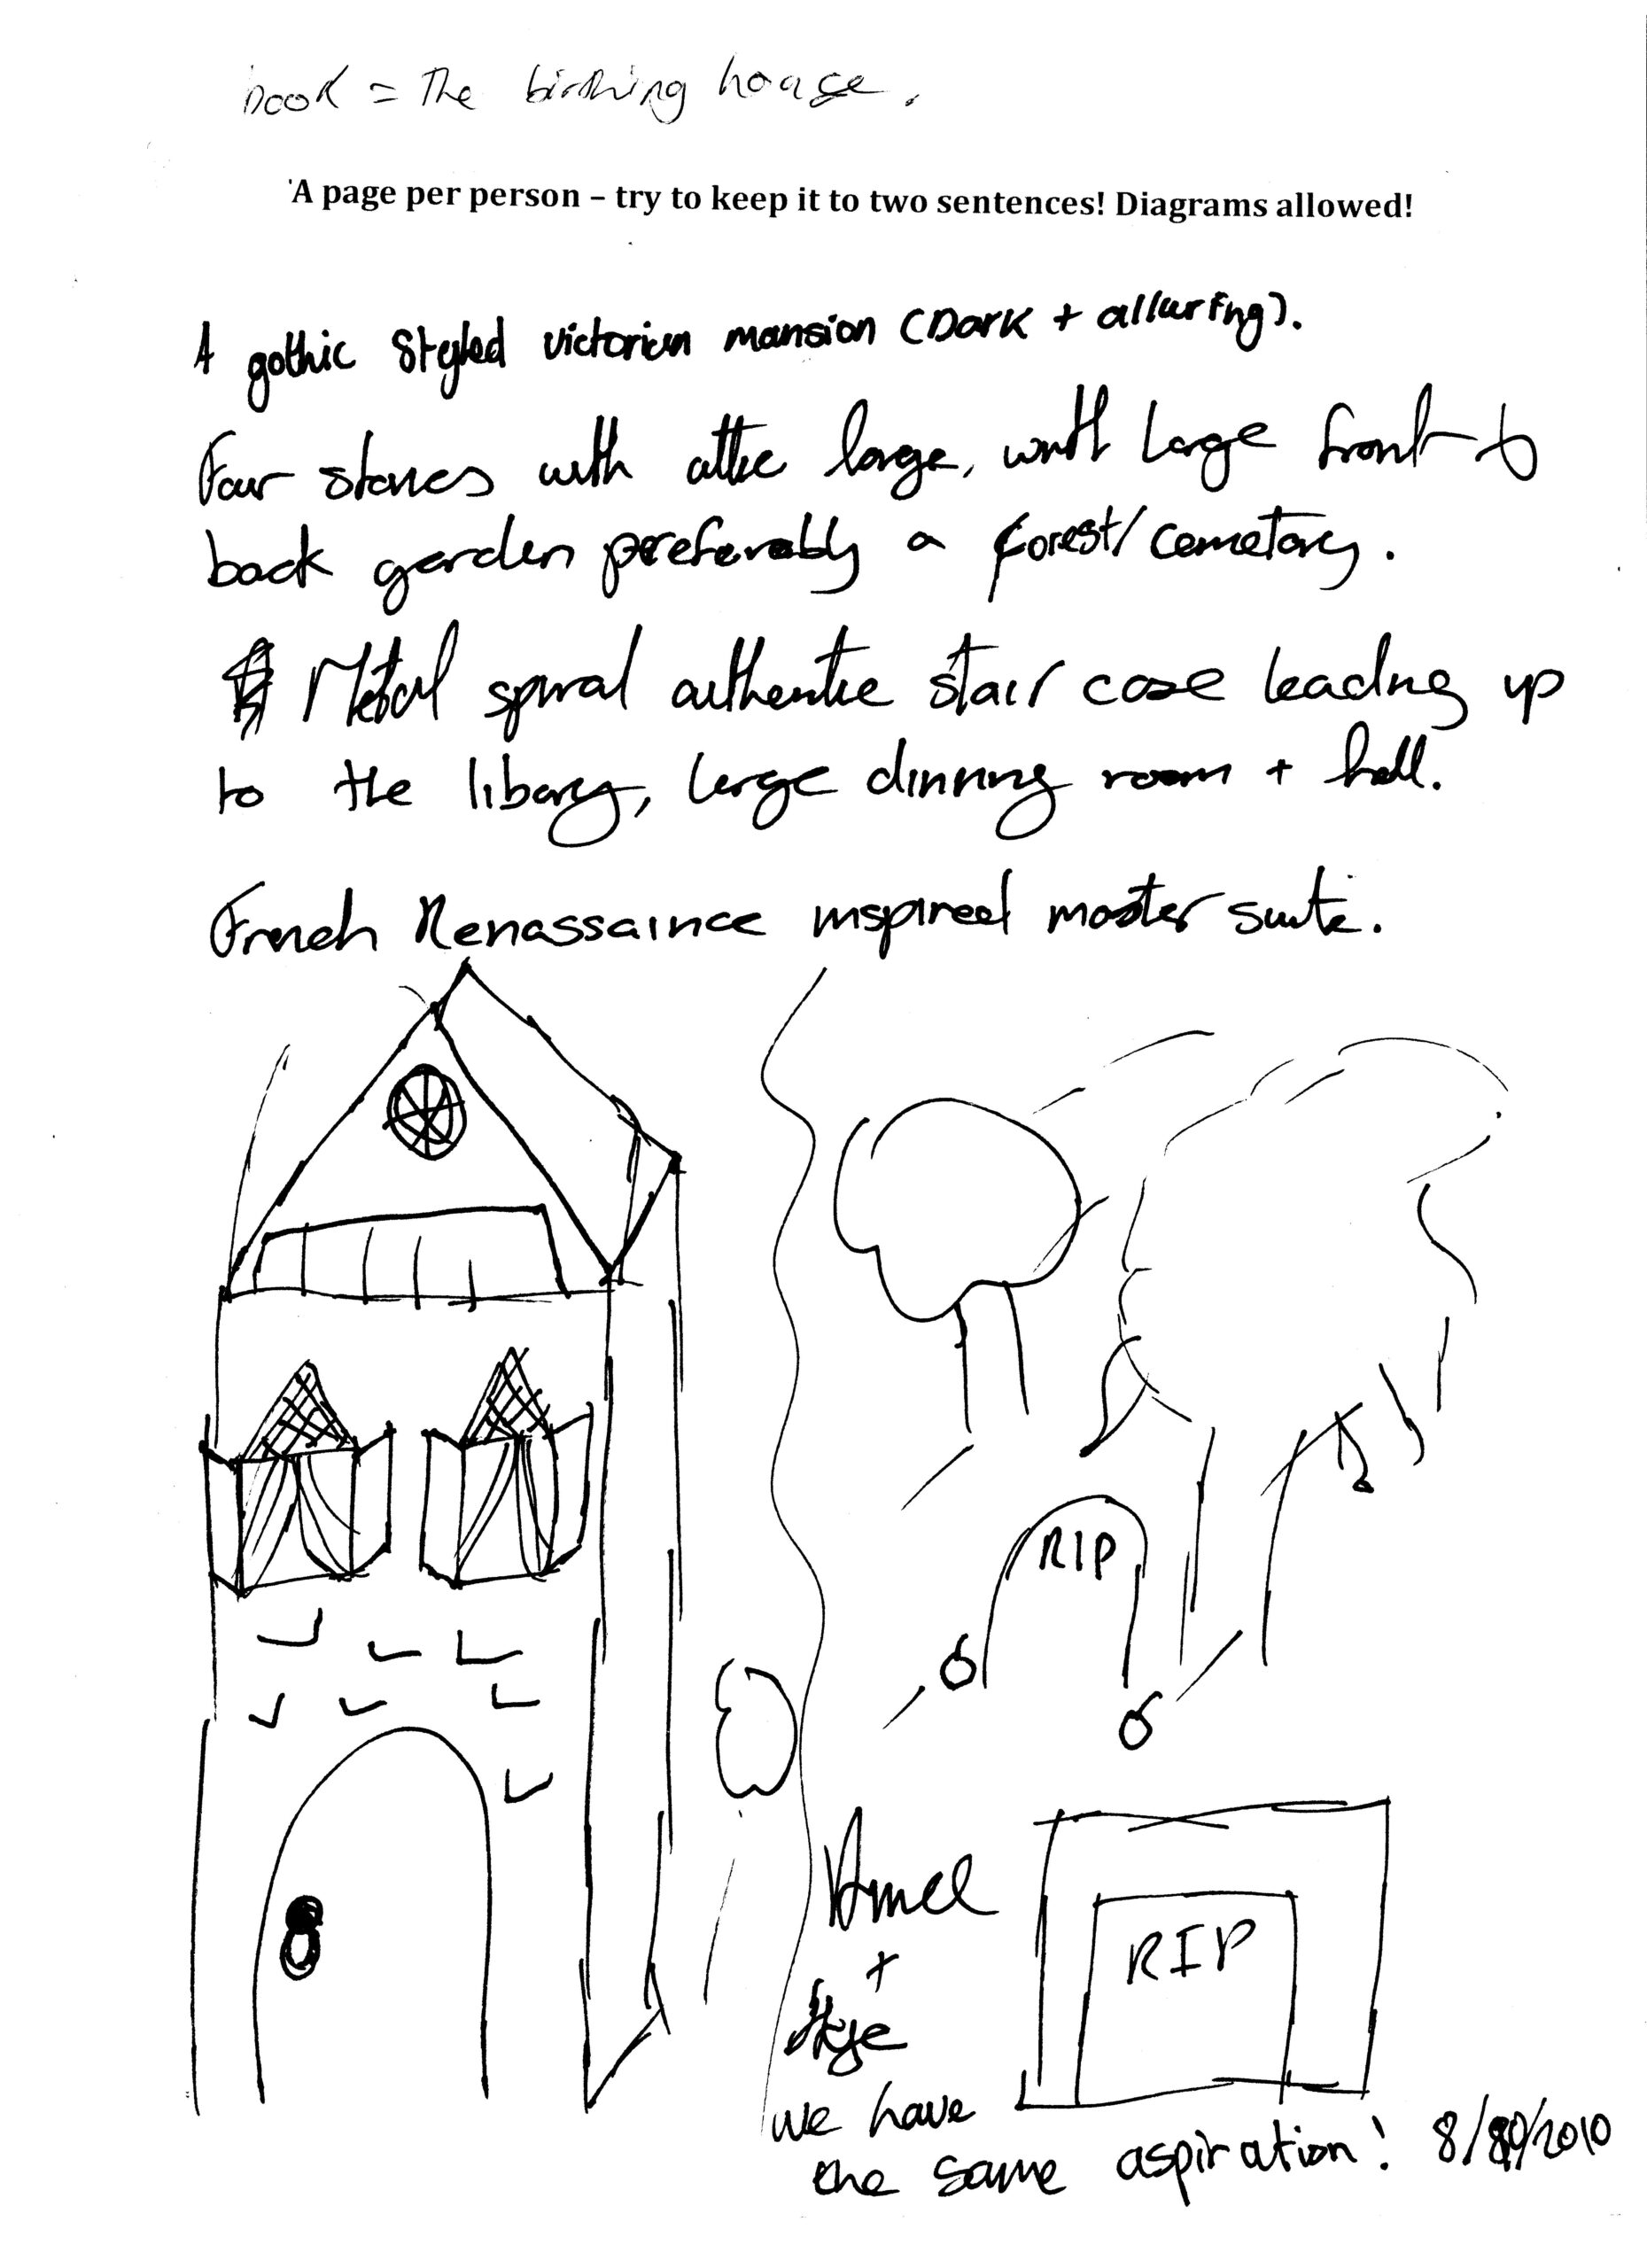 book = The birthing house.
'A page per person – try to keep it to two sentences! Diagrams allowed!
A gothic styled victorian mansion (Dark + alluring).
Four stories with attic large, with large front +
back garden preferably a forest/cemetary.
Metal spiral authentic stair case leading up
to the libary, large dinning room + hall.
French Renassaince inspired master suite.
RIP
RIP
+
Skye
we have
the same aspiration! 8/9/2010